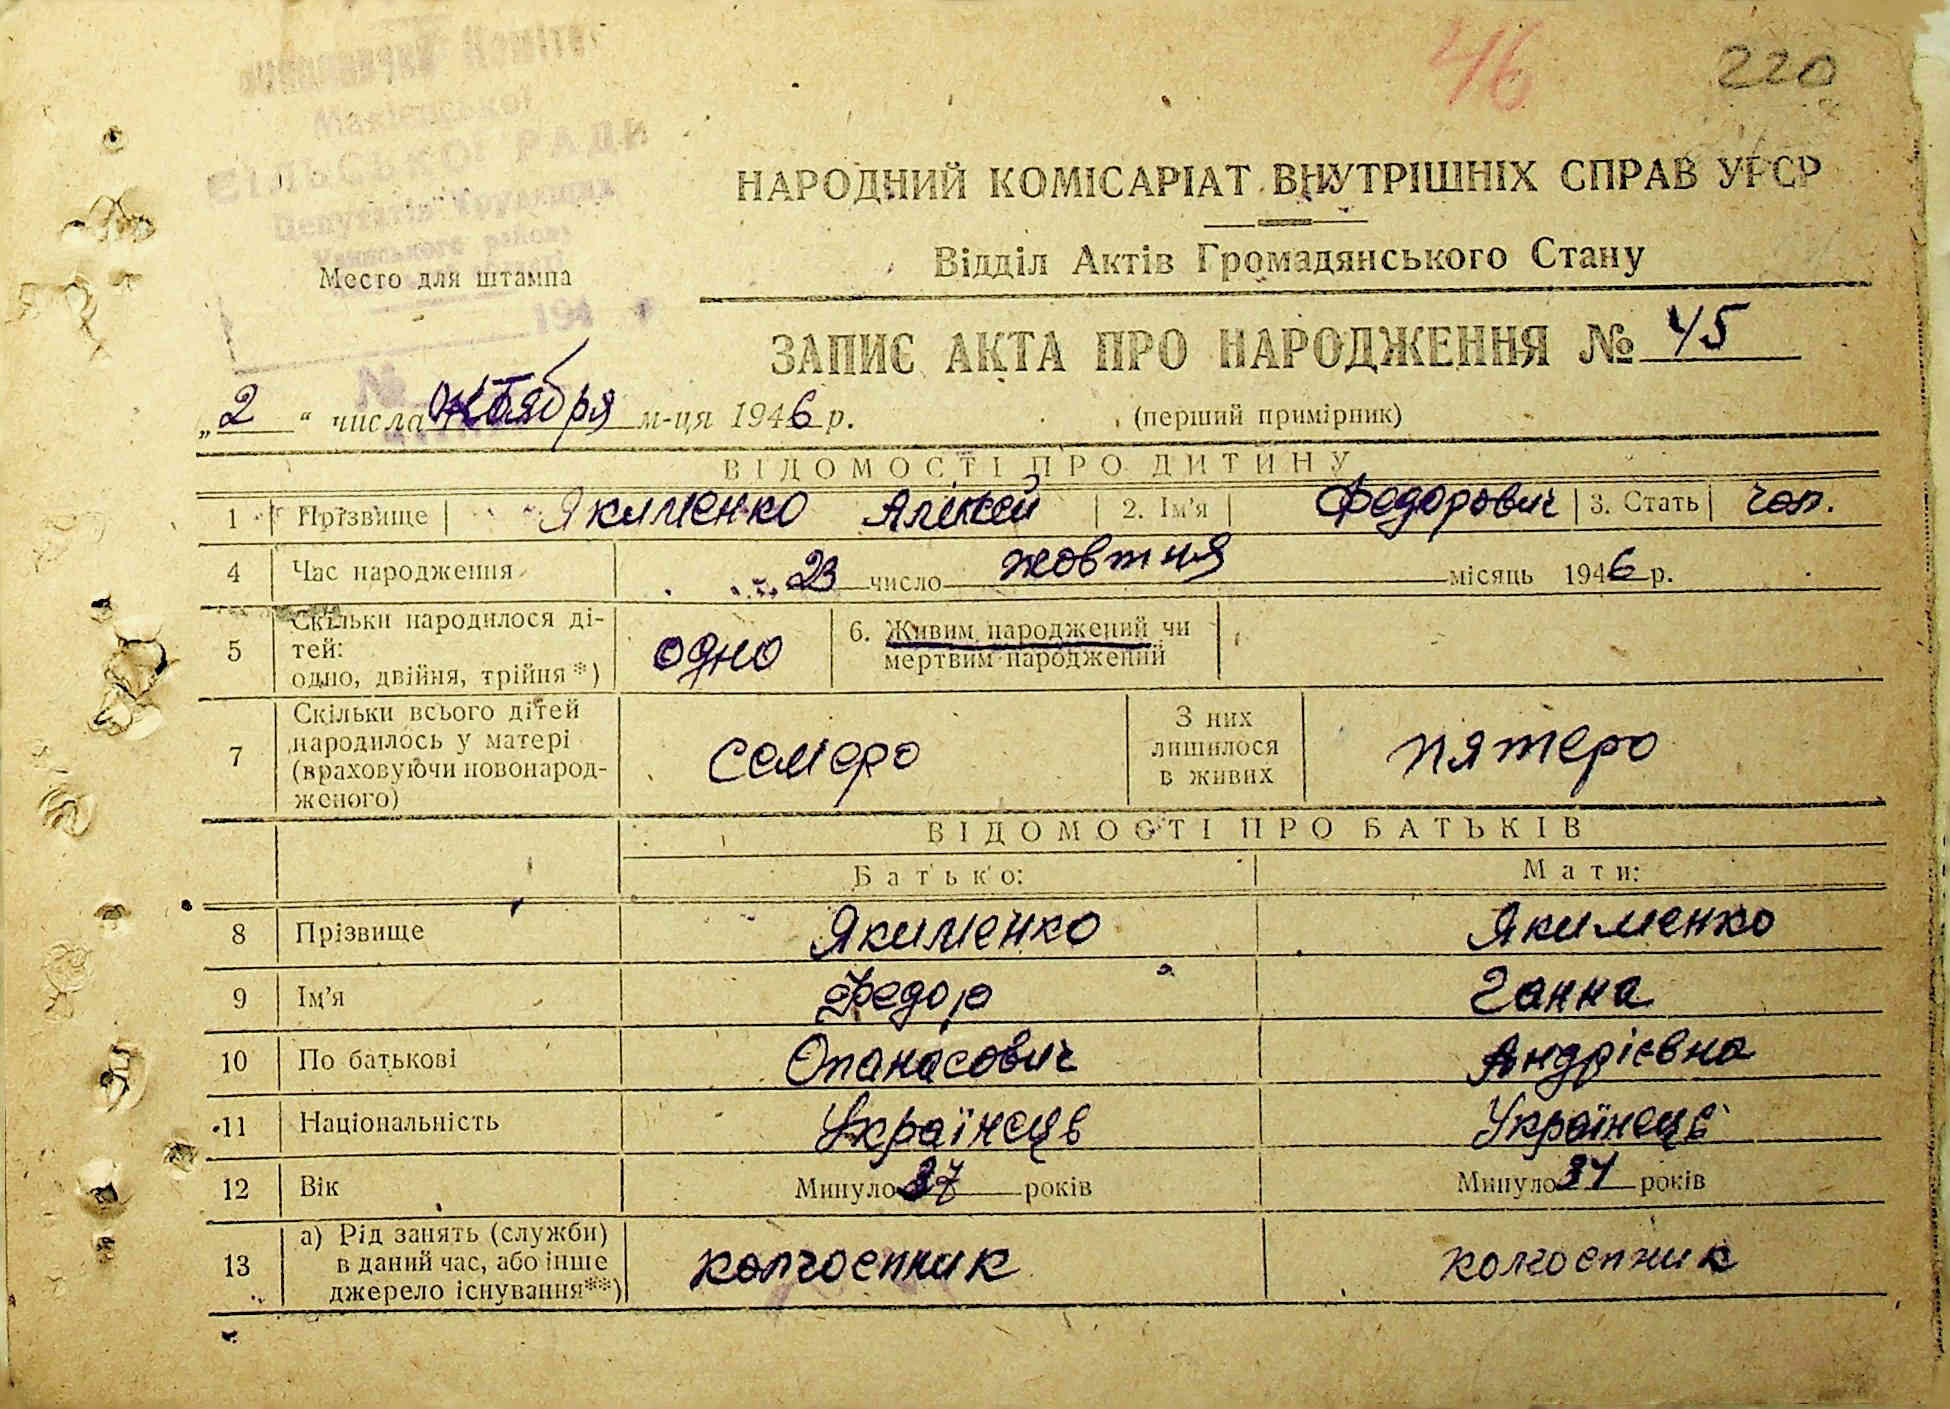 46
220
Комітет
СІЛЬСЬКОЇ РАДИ
Депутатів Трудящих
НАРОДНИЙ КОМІСАРІАТ ВНУТРІШНІХ СПРАВ УРСР
Відділ Актів Громадянського Стану
Место для штампа
194
ЗАПИС АКТА ПРО НАРОДЖЕННЯ № 45
№
„2“ числа октября м-ця 1946 р.
(перший примірник)
ВІДОМОСТІ ПРО ДИТИНУ
1 Прізвище Якименко Алексей 2. Ім'я Федорович 3. Стать чол.
4 Час народження 23 число жовтня місяць 1946 р.
5 Скільки народилося ді-
тей:
одно, двійня, трійня*)
одно
6. Живим народжений чи
мертвим народжений
7 Скільки всього дітей
народилось у матері
(враховуючи новонарод-
женого)
семеро
З них
лишилося
в живих
пятеро
ВІДОМОСТІ ПРО БАТЬКІВ
Батько: Мати:
8 Прізвище Якименко Якименко
9 Ім'я Федор Ганна
10 По батькові Опанасович Андрієвна
11 Національність Українець Українець
12 Вік Минуло 37 років Минуло років
13 а) Рід занять (служби)
в даний час, або інше
джерело існування**)
колгоспник колгоспник